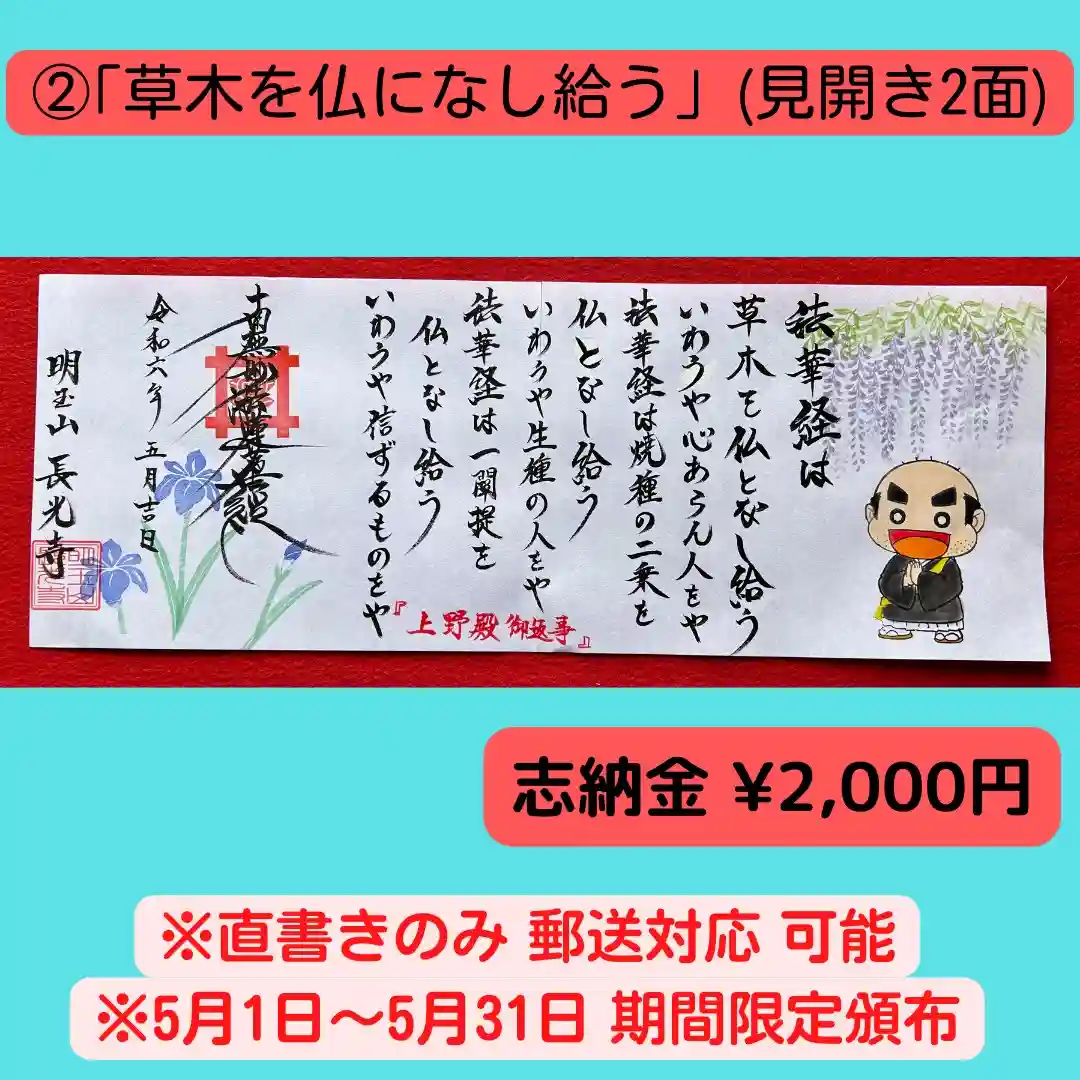 ②「草木を仏になし給う」(見開き2面)
法華経は
草木を仏となし給う
いわうや心あらん人をや
法華経は焼種の二乗を
仏となし給う
いわうや生種の人をや
法華経は一闡提を
仏となし給う
いわうや信ずるものをや
『上野殿御返事』
南無妙法蓮華経
令和六年 五月吉日
明玉山 長光寺
志納金 ¥2,000円
※直書きのみ 郵送対応 可能
※5月1日〜5月31日 期間限定頒布